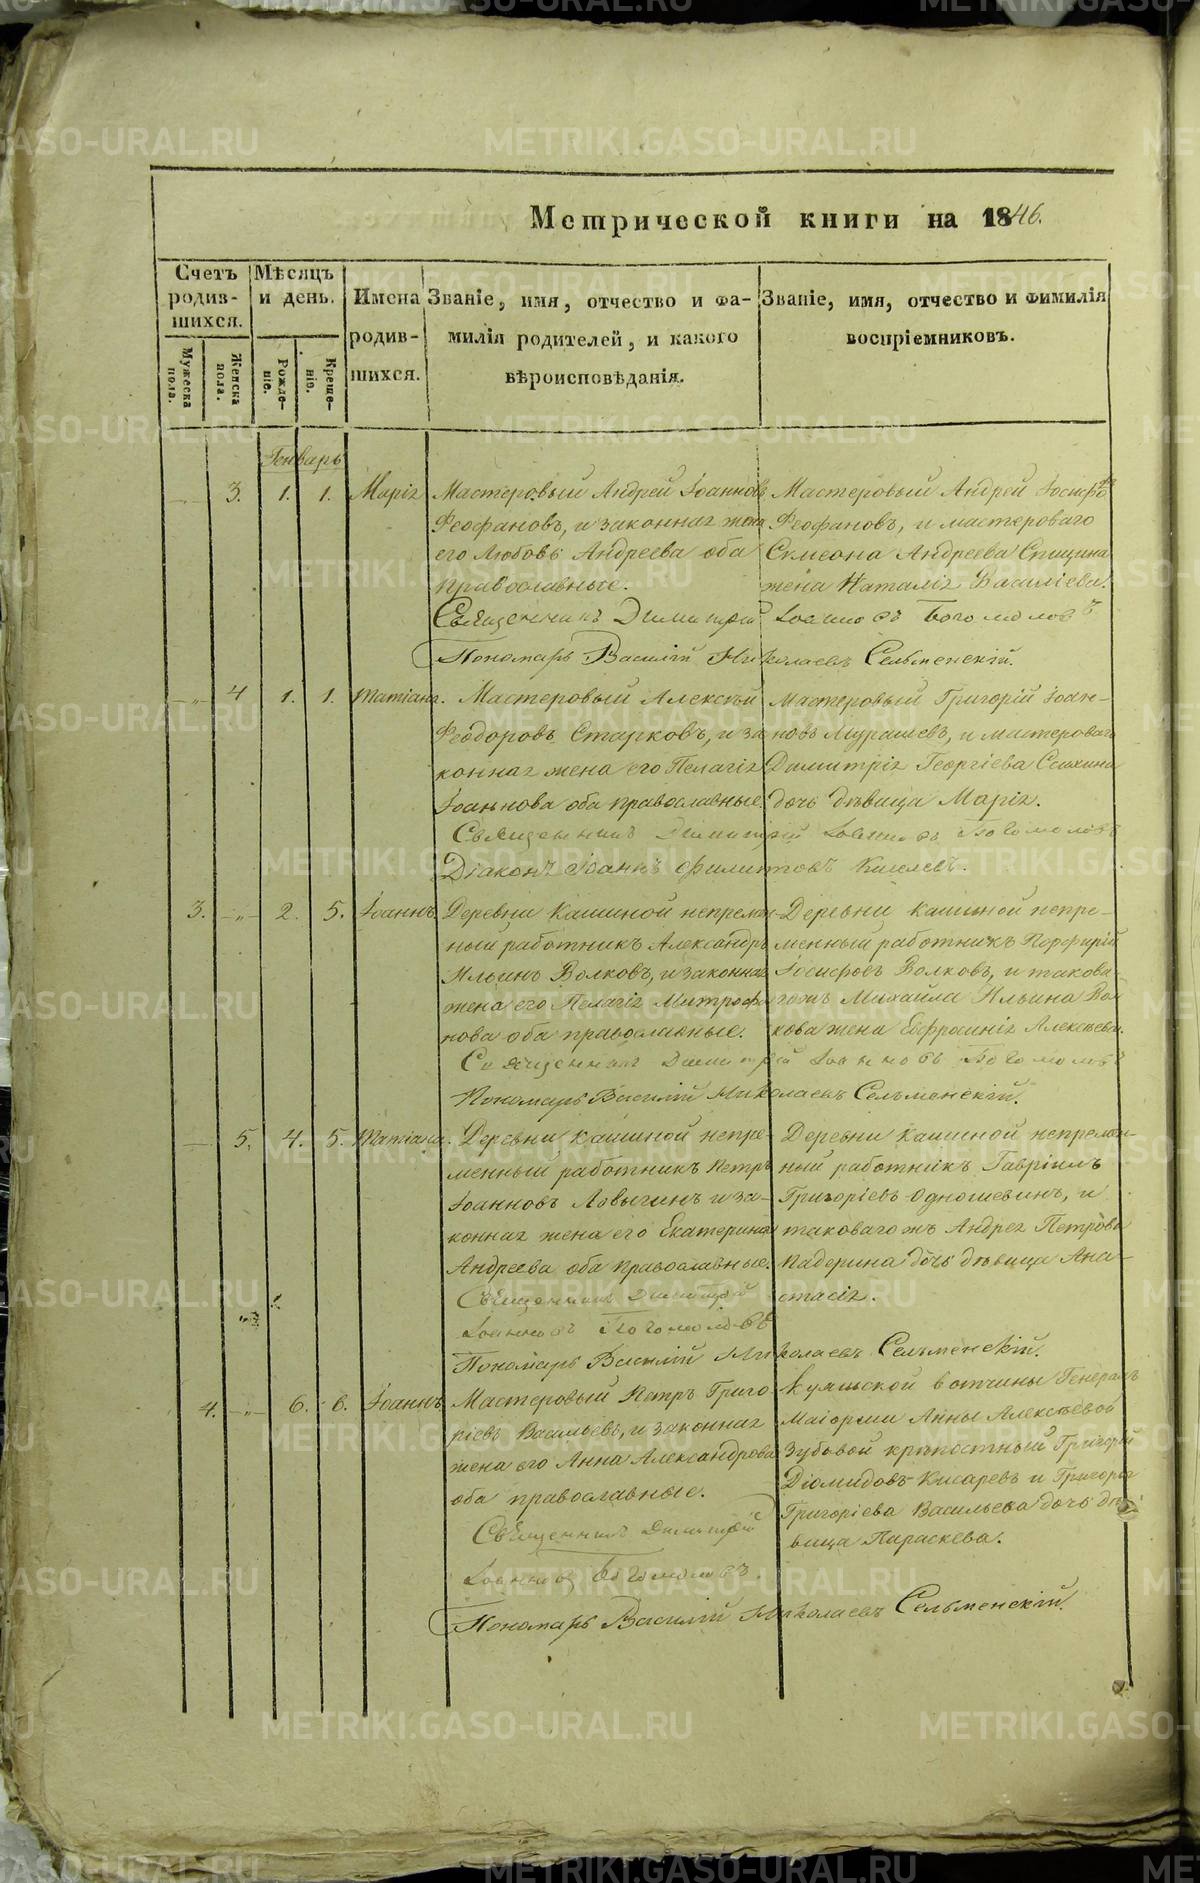 Метрической книги на 1846.
Счетъ родив-шихся.
Мужеска пола.
Женска пола.
Мѣсяцъ и день.
Рожде-ніе.
Креще-нія.
Имена родив-шихся.
Званіе, имя, отчество и фа-
милія родителей, и какого
вѣроисповѣданія.
Званіе, имя, отчество и фимилія
воспріемниковъ.
Генварь
3. 1. 1. Марія
Мастеровый Андрей Іоанновъ
Феофановъ, и законная жена
его Любовь Андреева оба
православные.
Мастеровый Андрей Іосифовъ
Феофановъ, и мастероваго
Симеона Андреева Спицина
жена Наталія Василіева.
Священникъ Димитрій Іоанновъ Богомоловъ
Пономарь Василій Николаевъ Сельменскій.
4 1. 1. Татіана.
Мастеровый Алексѣй
Феодоровъ Старковъ, и за
конная жена его Пелагія
Іоаннова оба православные.
Мастеровый Григорій Іоан-
новъ Мурашевъ, и мастероваго
Димитрія Георгіева
дочь дѣвица Марія.
Священникъ Димитрій Іоанновъ Богомоловъ
Діаконъ Іоаннъ Филиповъ Киселевъ.
3. 2. 5. Іоаннъ.
Деревни Кашиной непремѣн-
ный работникъ Александръ
Ильинъ Волковъ, и законная
жена его Пелагія Митрофа
нова оба православные.
Деревни Кашиной непре-
менный работникъ Порфирій
Іосифовъ Волковъ, и такова-
гожъ Михаила Ильина Вол
кова жена Евфросинія Алексѣева.
Священникъ Димитрій Іоанновъ Богомоловъ
Пономарь Василій Николаевъ Сельменскій.
5. 4. 5. Татіана.
Деревни Кашиной непре-
менный работникъ Петръ
Іоанновъ Ловыгинъ и за-
конная жена его Екатерина
Андреева оба православные.
Деревни Кашиной непремѣн-
ный работникъ Гавріилъ
Григоріевъ Одношевинъ, и
таковагожъ Андрея Петрова
Падерина дочь дѣвица Ана-
стасія.
Священникъ Димитрій
Іоанновъ Богомоловъ
Пономарь Василій Николаевъ Сельменскій.
4. 6. 6. Іоаннъ
Мастеровый Петръ Григо
ріевъ Васильевъ, и законная
жена его Анна Александрова
оба православные.
вотчины Генералъ
Маіорши Анны Алексѣевой
Зубовой крѣпостный Григорій
Діомидовъ Кисаревъ и Григорія
Григоріева Васильева дочь дѣ
вица Параскева.
Священникъ Димитрій
Іоанновъ Богомоловъ.
Пономарь Василій Николаевъ Сельменскій.
METRIKI.GASO-URAL.RU